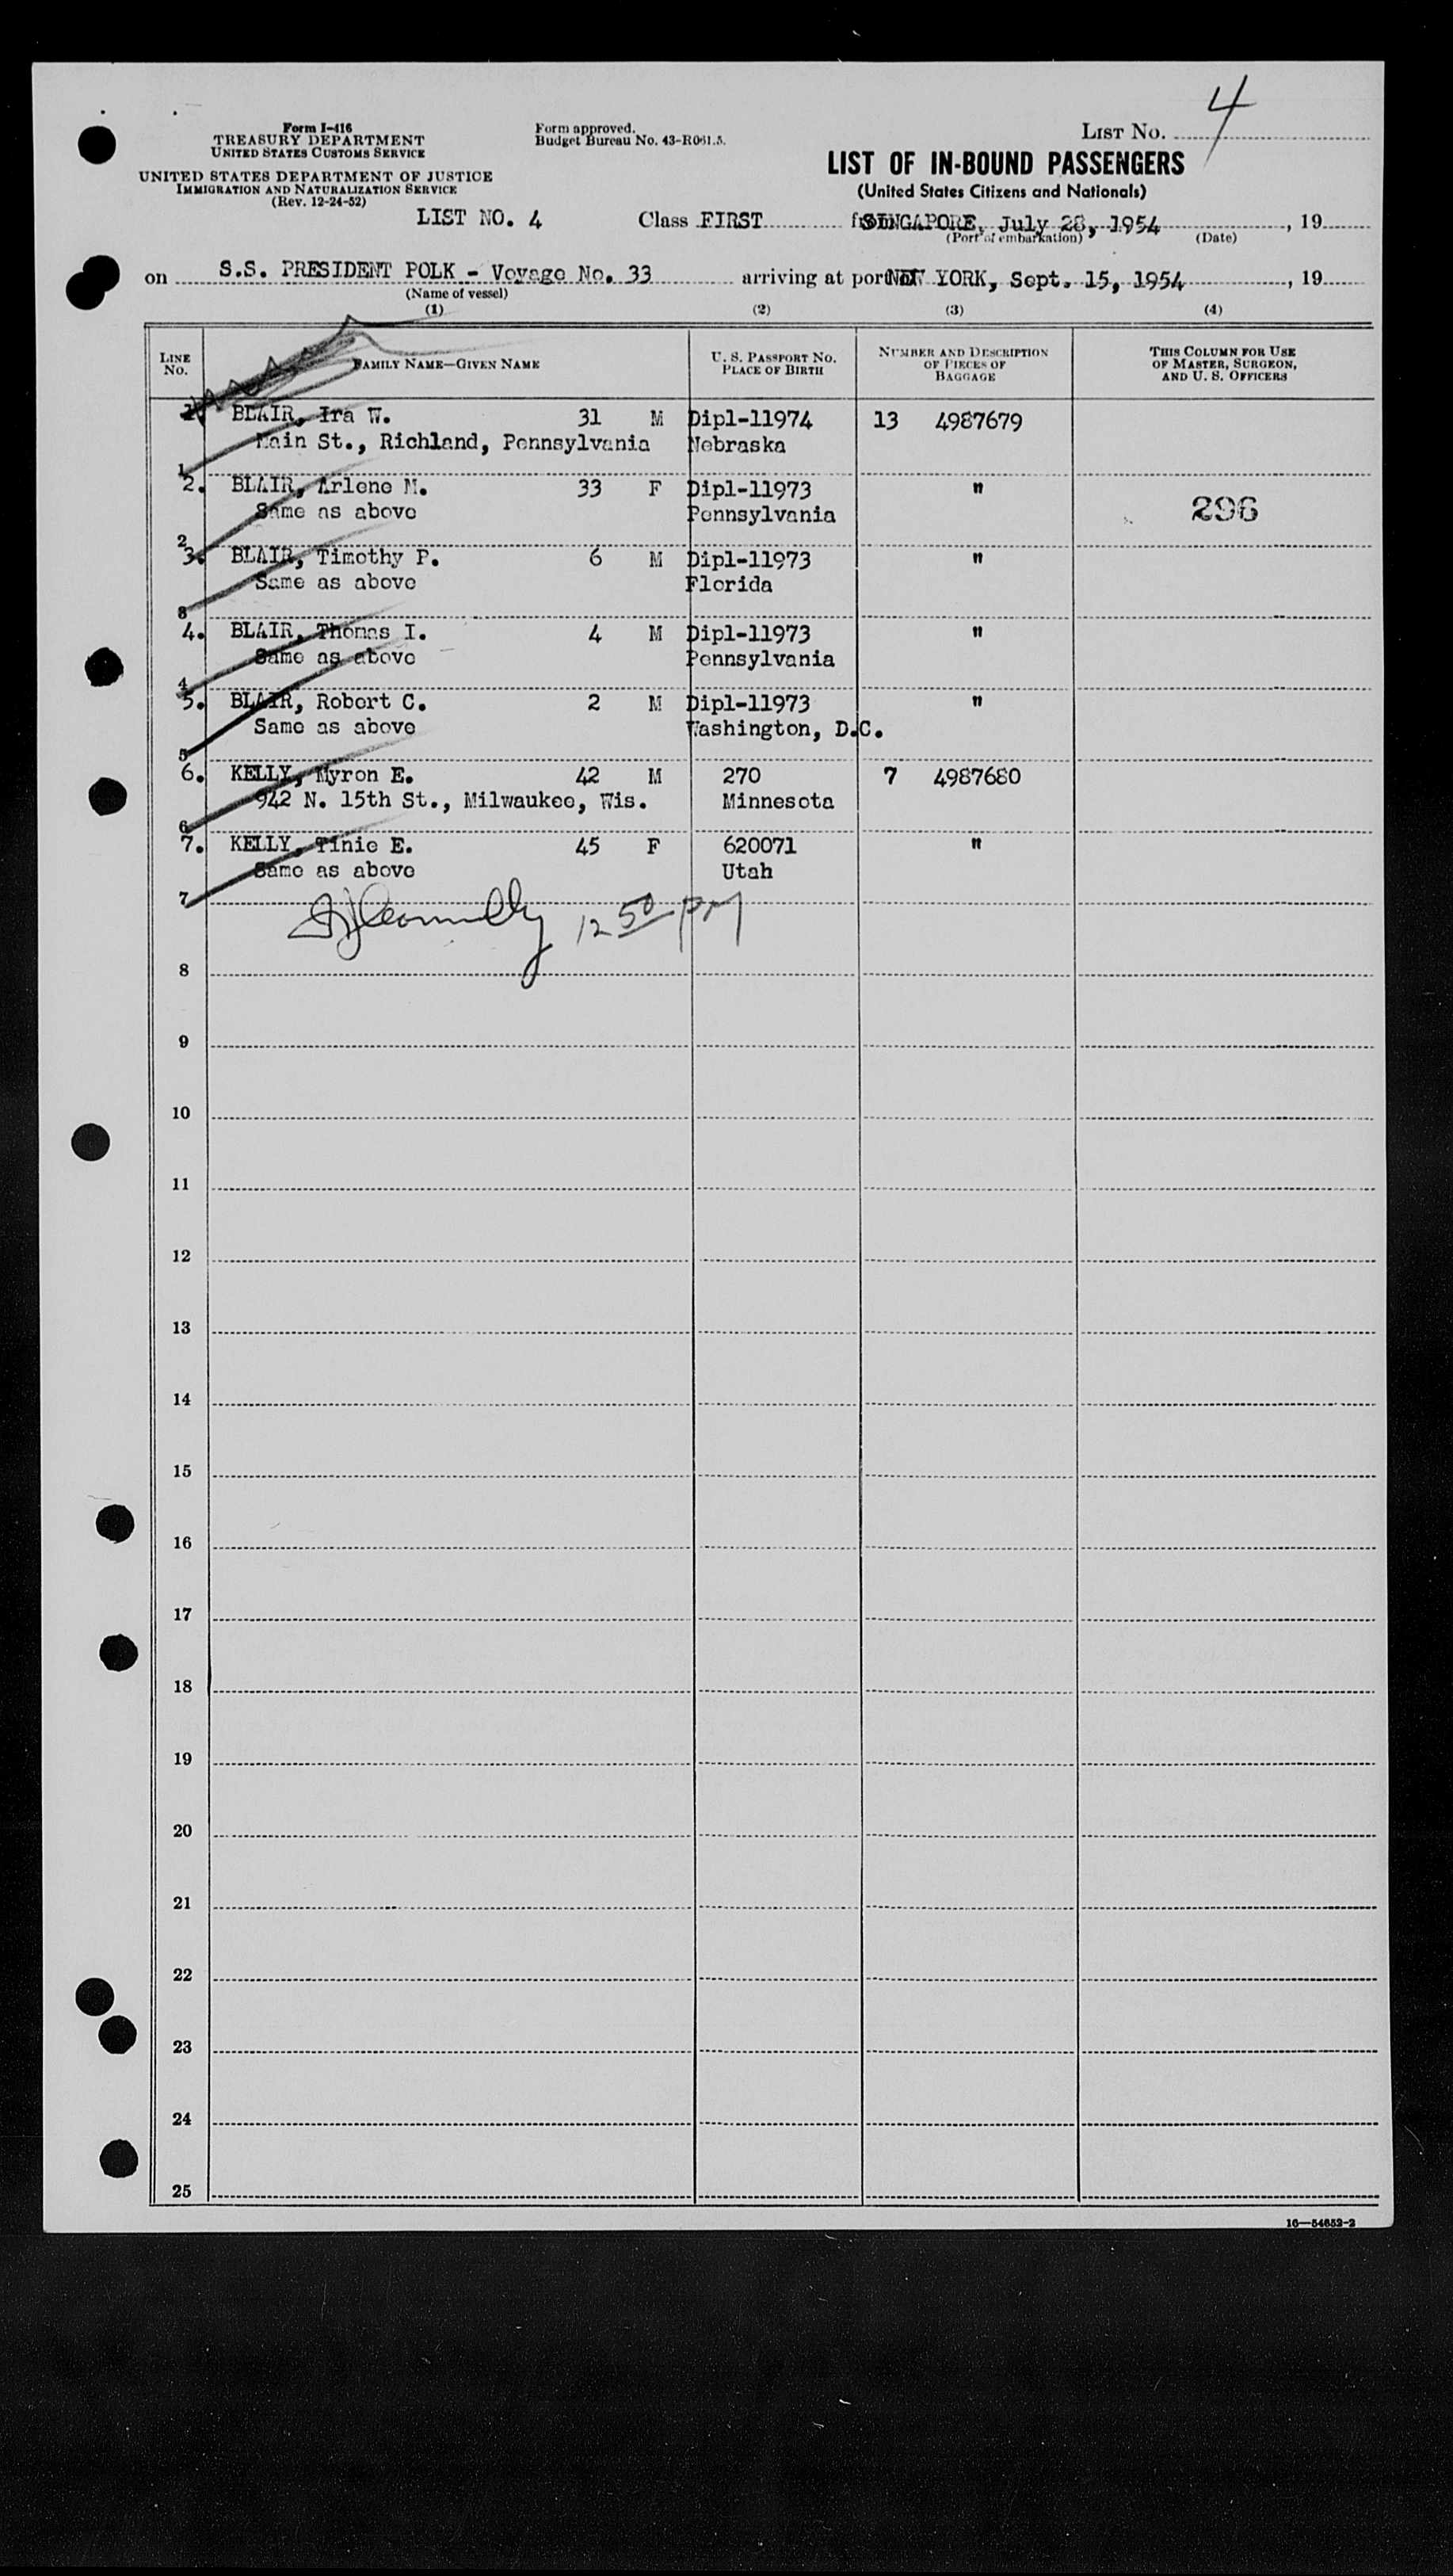 4
Form I-416
TREASURY DEPARTMENT
UNITED STATES CUSTOMS SERVICE
UNITED STATES DEPARTMENT OF JUSTICE
IMMIGRATION AND NATURALIZATION SERVICE
(Rev. 12-24-52)
Form approved.
Budget Bureau No. 43-R061.5.
LIST NO.
LIST OF IN-BOUND PASSENGERS
(United States Citizens and Nationals)
LIST NO. 4 Class FIRST from SINGAPORE, July 28, 1954, 19
(Port of embarkation) (Date)
on S.S. PRESIDENT POLK - Voyage No. 33 arriving at port of NEW YORK, Sept. 15, 1954, 19
(Name of vessel)
(1) (2) (3) (4)
LINE NO. FAMILY NAME—GIVEN NAME U. S. PASSPORT NO. PLACE OF BIRTH NUMBER AND DESCRIPTION OF PIECES OF BAGGAGE THIS COLUMN FOR USE OF MASTER, SURGEON, AND U. S. OFFICERS
1. BLAIR, Ira W. 31 M Dipl-11974 13 4987679
Main St., Richland, Pennsylvania Nebraska
1
2. BLAIR, Arlene M. 33 F Dipl-11973 "
Same as above Pennsylvania 296
2
3. BLAIR, Timothy P. 6 M Dipl-11973 "
Same as above Florida
3
4. BLAIR, Thomas I. 4 M Dipl-11973 "
Same as above Pennsylvania
4
5. BLAIR, Robert C. 2 M Dipl-11973 "
Same as above Washington, D.C.
5
6. KELLY, Myron E. 42 M 270 7 4987680
942 N. 15th St., Milwaukee, Wis. Minnesota
6
7. KELLY, Tinie E. 45 F 620071 "
Same as above Utah
7
12 50 PM
8
9
10
11
12
13
14
15
16
17
18
19
20
21
22
23
24
25
16—54652-2